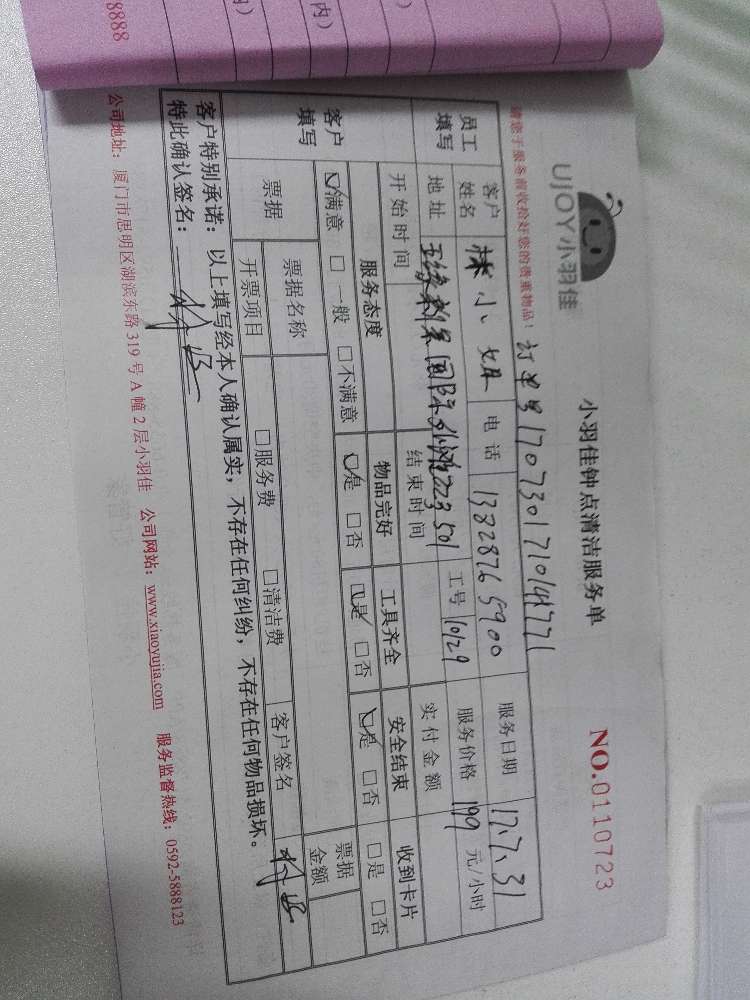 内） 内） ）
8888
UJOY小羽佳
小羽佳钟点清洁服务单
NO.0110723
请您于服务前收拾好您的贵重物品！ 订单号1707301710141771
员工填写 客户姓名 林小娟 电话 13828765900 服务日期 17.7.31
地址 223 501 工号 10129 服务价格 199 元/小时
开始时间 结束时间 实付金额
客户填写 服务态度 物品完好 工具齐全 安全结束 收到卡片
☑满意 □一般 □不满意 ☑是 □否 ☑是 □否 ☑是 □否 □是 □否
票据 票据名称 票据金额
开票项目 □服务费 □清洁费 客户签名
客户特别承诺：以上填写经本人确认属实，不存在任何纠纷，不存在任何物品损坏。
特此确认签名：
公司地址：厦门市思明区湖滨东路 319 号 A 幢 2 层小羽佳 公司网站：www.xiaoyujia.com 服务监督热线：0592-5888123